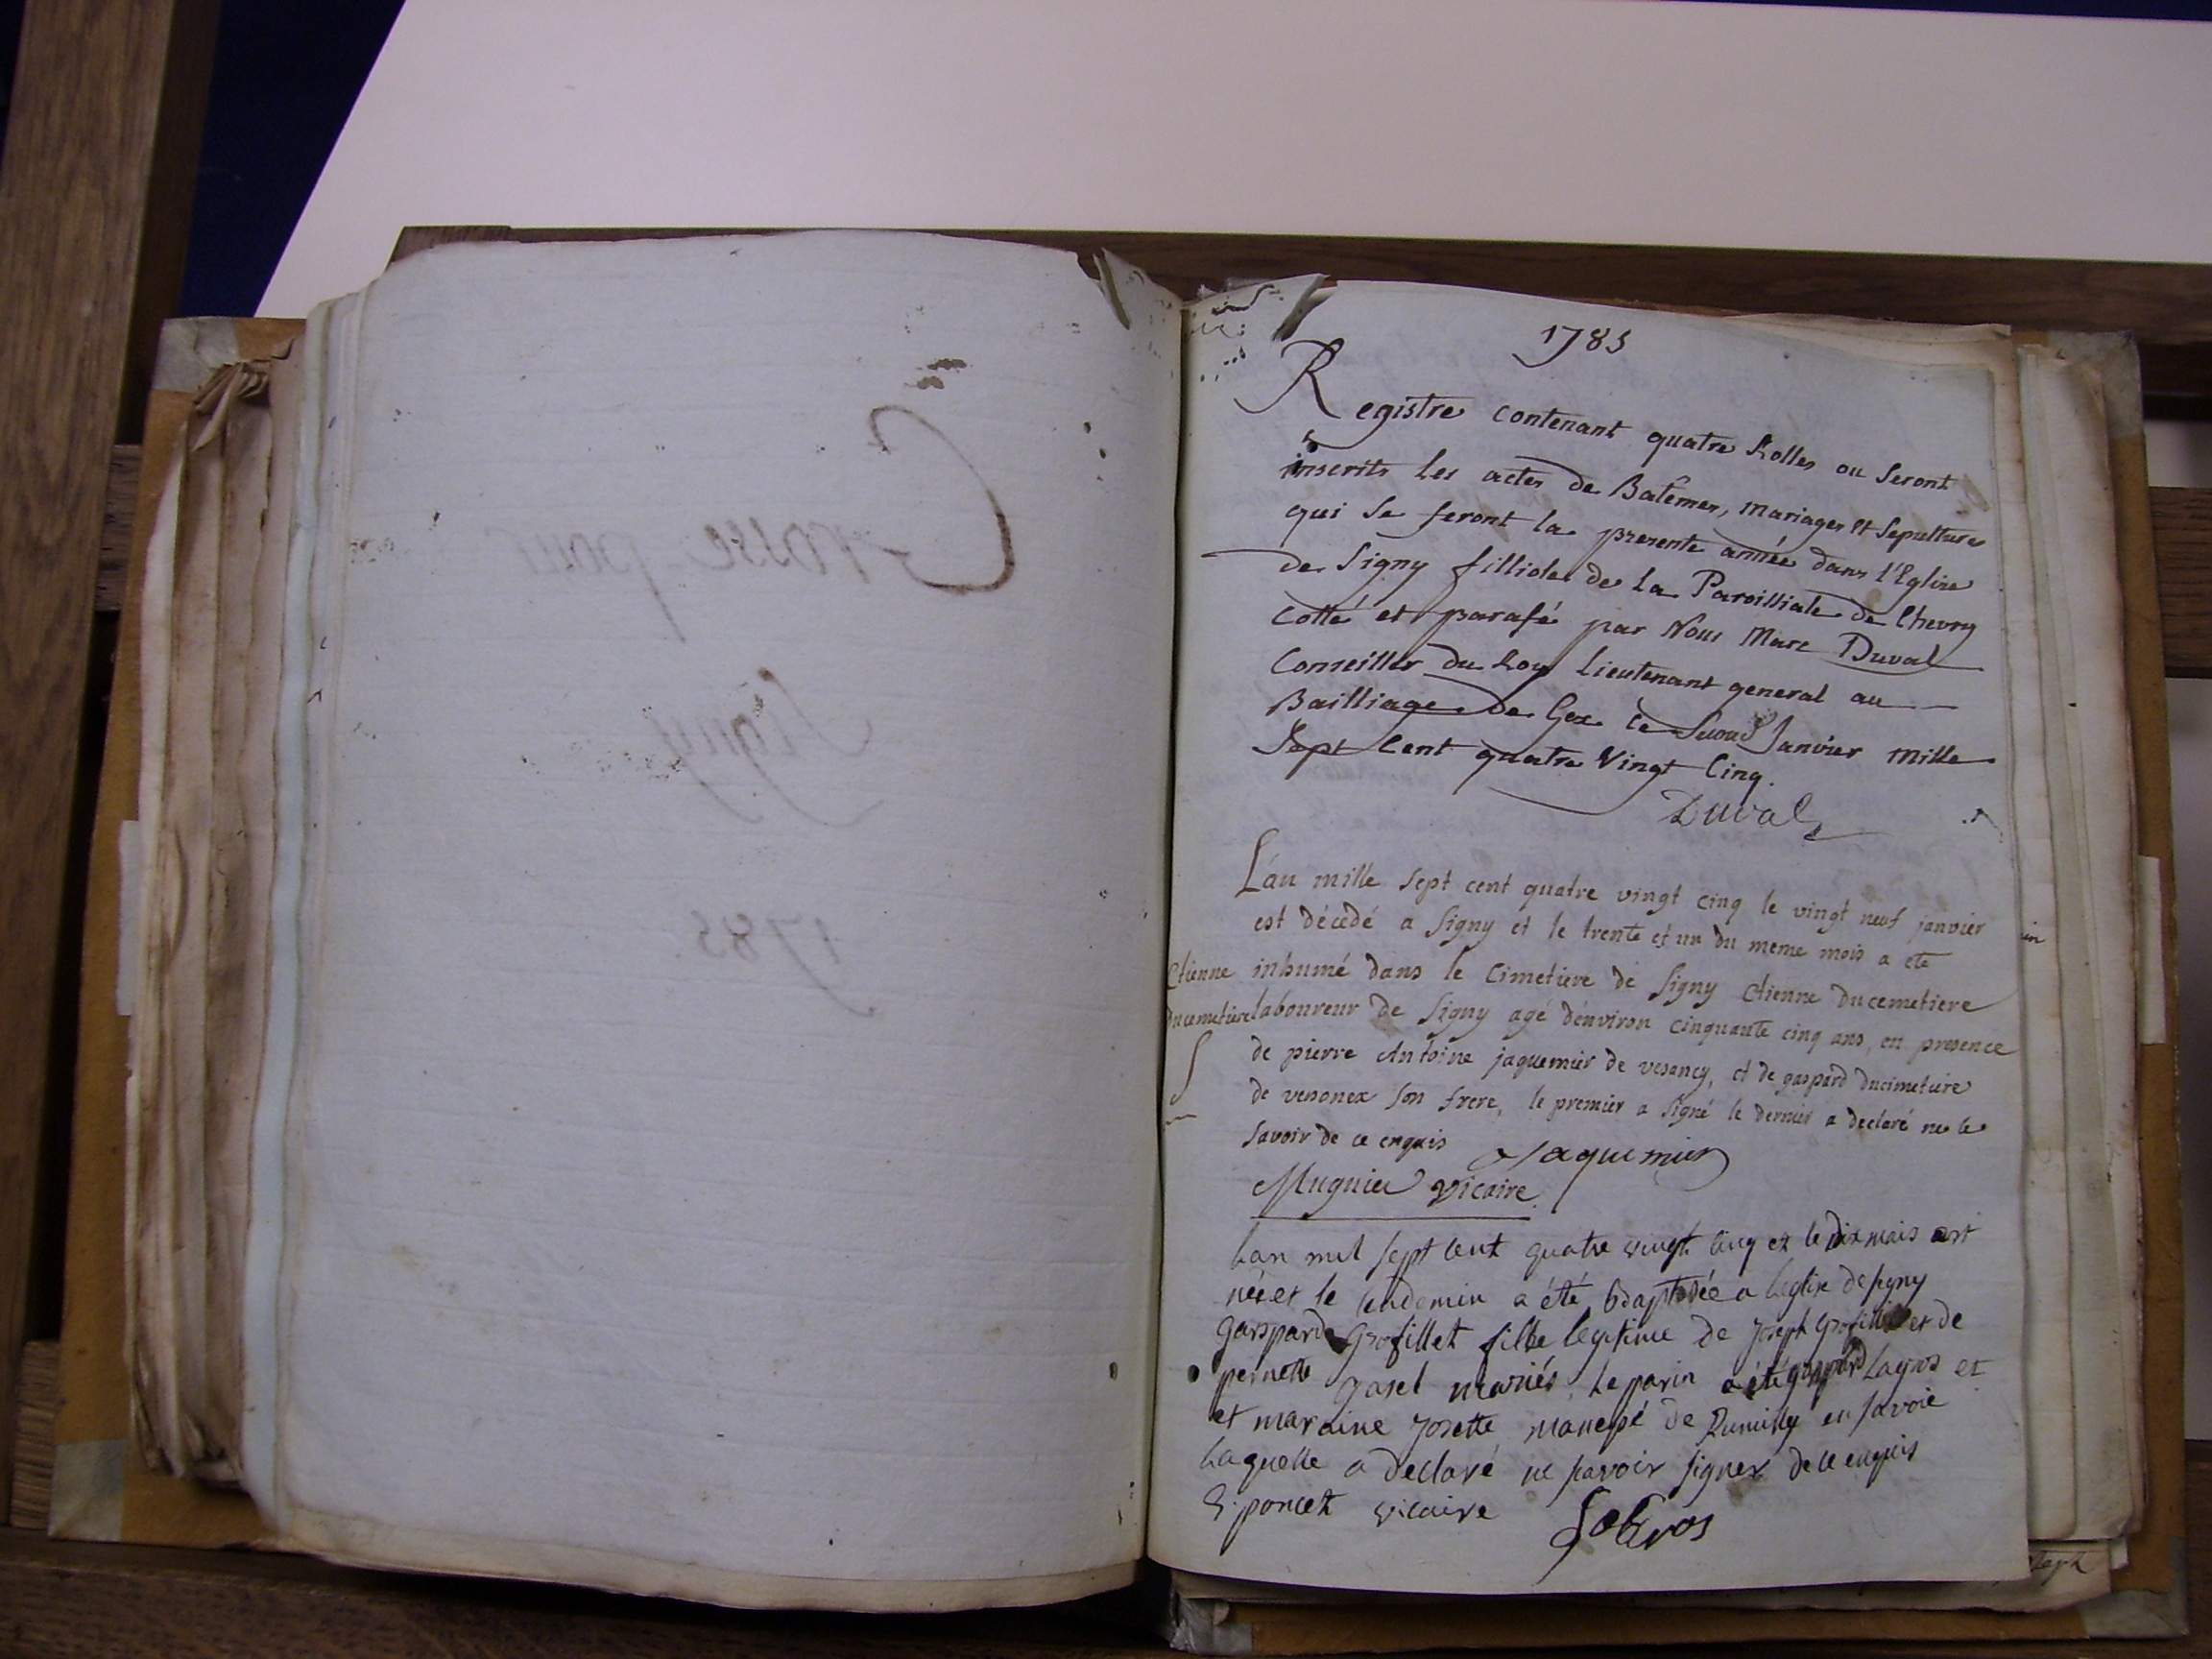 Grosse pour
Signy
1785.
1785
Registre contenant quatre Rolles ou Seront
inscrits Les actes de Batêmes, mariages et Sepultures
qui Se feront la presente année dans l'Eglise
de Signy filliole de La Paroissiale de Chevry
Cotté et parafé par Nous Marc Duval
Conseiller du Roy Lieutenant general au
Bailliage de Gex le Second Janvier mille
Sept Cent quatre Vingt Cinq.
Duval
L'an mille Sept cent quatre vingt cinq le vingt neuf janvier
est décédé a Signy et le trente et un du meme mois a ete
Etienne
ducemetiere
S
inhumé dans le Cimetiere de Signy Etienne ducemetiere
laboureur de Signy agé d'environ cinquante cinq ans, en presence
de pierre Antoine jaquemier de vesancy, et de gaspard ducimetiere
de vesenex Son frere, le premier a Signé le dernier a declaré ne le
Savoir de ce enquis Jaquemier
Mugnier vicaire.
Lan mil sept cent quatre vingt cinq et le dix mais est
née et le lendemin a été baptisée a leglise de signy
gasparde Grosfillet fille legitime de Joseph Grosfillet et de
pernette mariés. Le parin a été gaspard Lagros et
et maraine Josette de Rumilly en savoie
Laquelle a declaré ne savoir signer de ce enquis
poncet vicaire